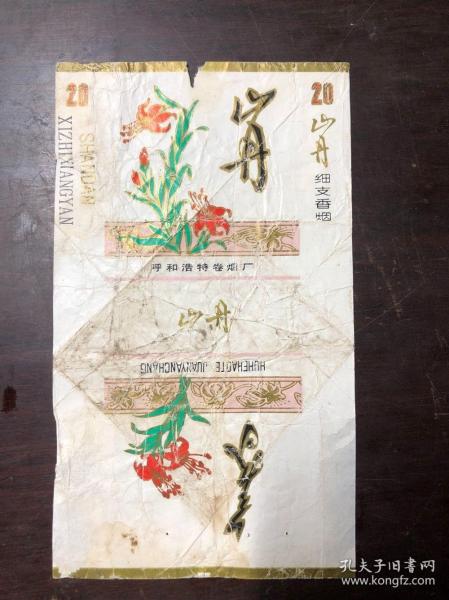 20
SHANDAN
XIZHIXIANGYAN
山丹
20
山丹
细支香烟
呼和浩特卷烟厂
山丹
HUHEHAOTE JUANYANCHANG
山丹
孔夫子旧书网
www.kongfz.com